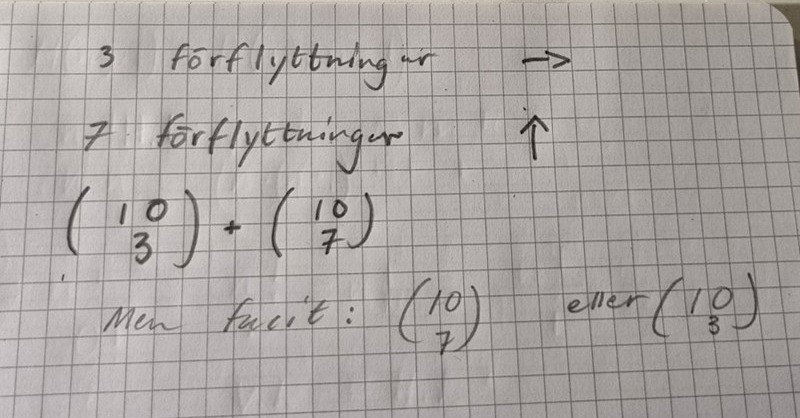 3 förflyttningar →
7 förflyttningar ↑
(10 3) + (10 7)
Men facit: (10 7) eller (10 3)